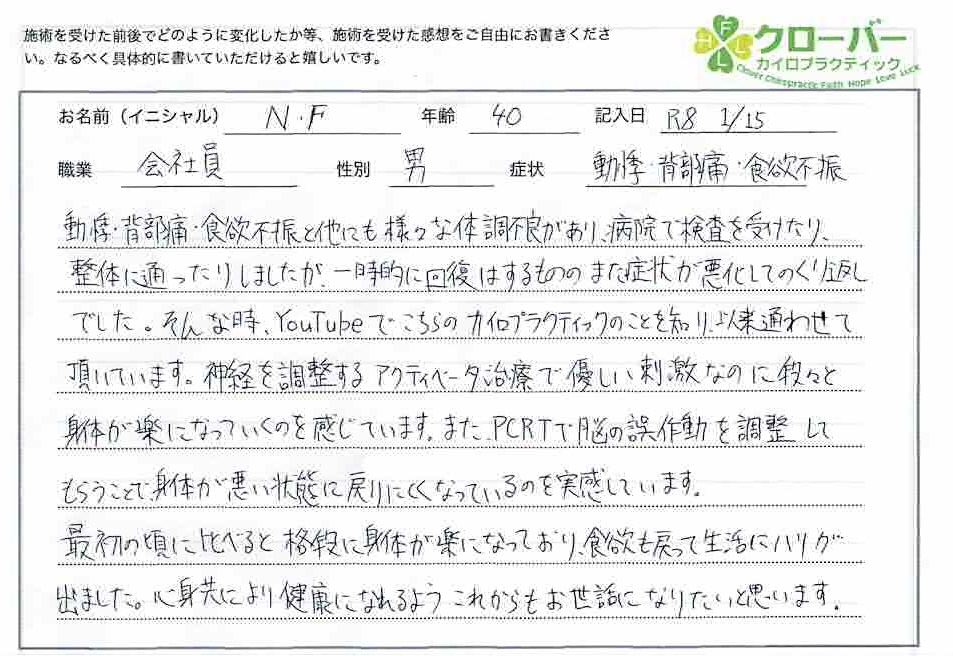 施術を受けた前後でどのように変化したか等、施術を受けた感想をご自由にお書きくださ
い。なるべく具体的に書いていただけると嬉しいです。
FHLL
クローバー
カイロプラクティック
Clover Chiropractic Faith Hope Love Luck
お名前（イニシャル） N・F 年齢 40 記入日 R8 1/15
職業 会社員 性別 男 症状 動悸・背部痛・食欲不振
動悸・背部痛・食欲不振と他にも様々な体調不良があり、病院で検査を受けたり、
整体に通ったりしましたが、一時的に回復はするもののまた症状が悪化してのくり返し
でした。そんな時、YouTubeでこちらのカイロプラクティックのことを知り、以来通わせて
頂いています。神経を調整するアクティベータ治療で優しい刺激なのに段々と
身体が楽になっていくのを感じています。また、PCRTで脳の誤作動を調整して
もらうことで身体が悪い状態に戻りにくくなっているのを実感しています。
最初の頃に比べると格段に身体が楽になっており、食欲も戻って生活にハリが
出ました。心身共により健康になれるようこれからもお世話になりたいと思います。